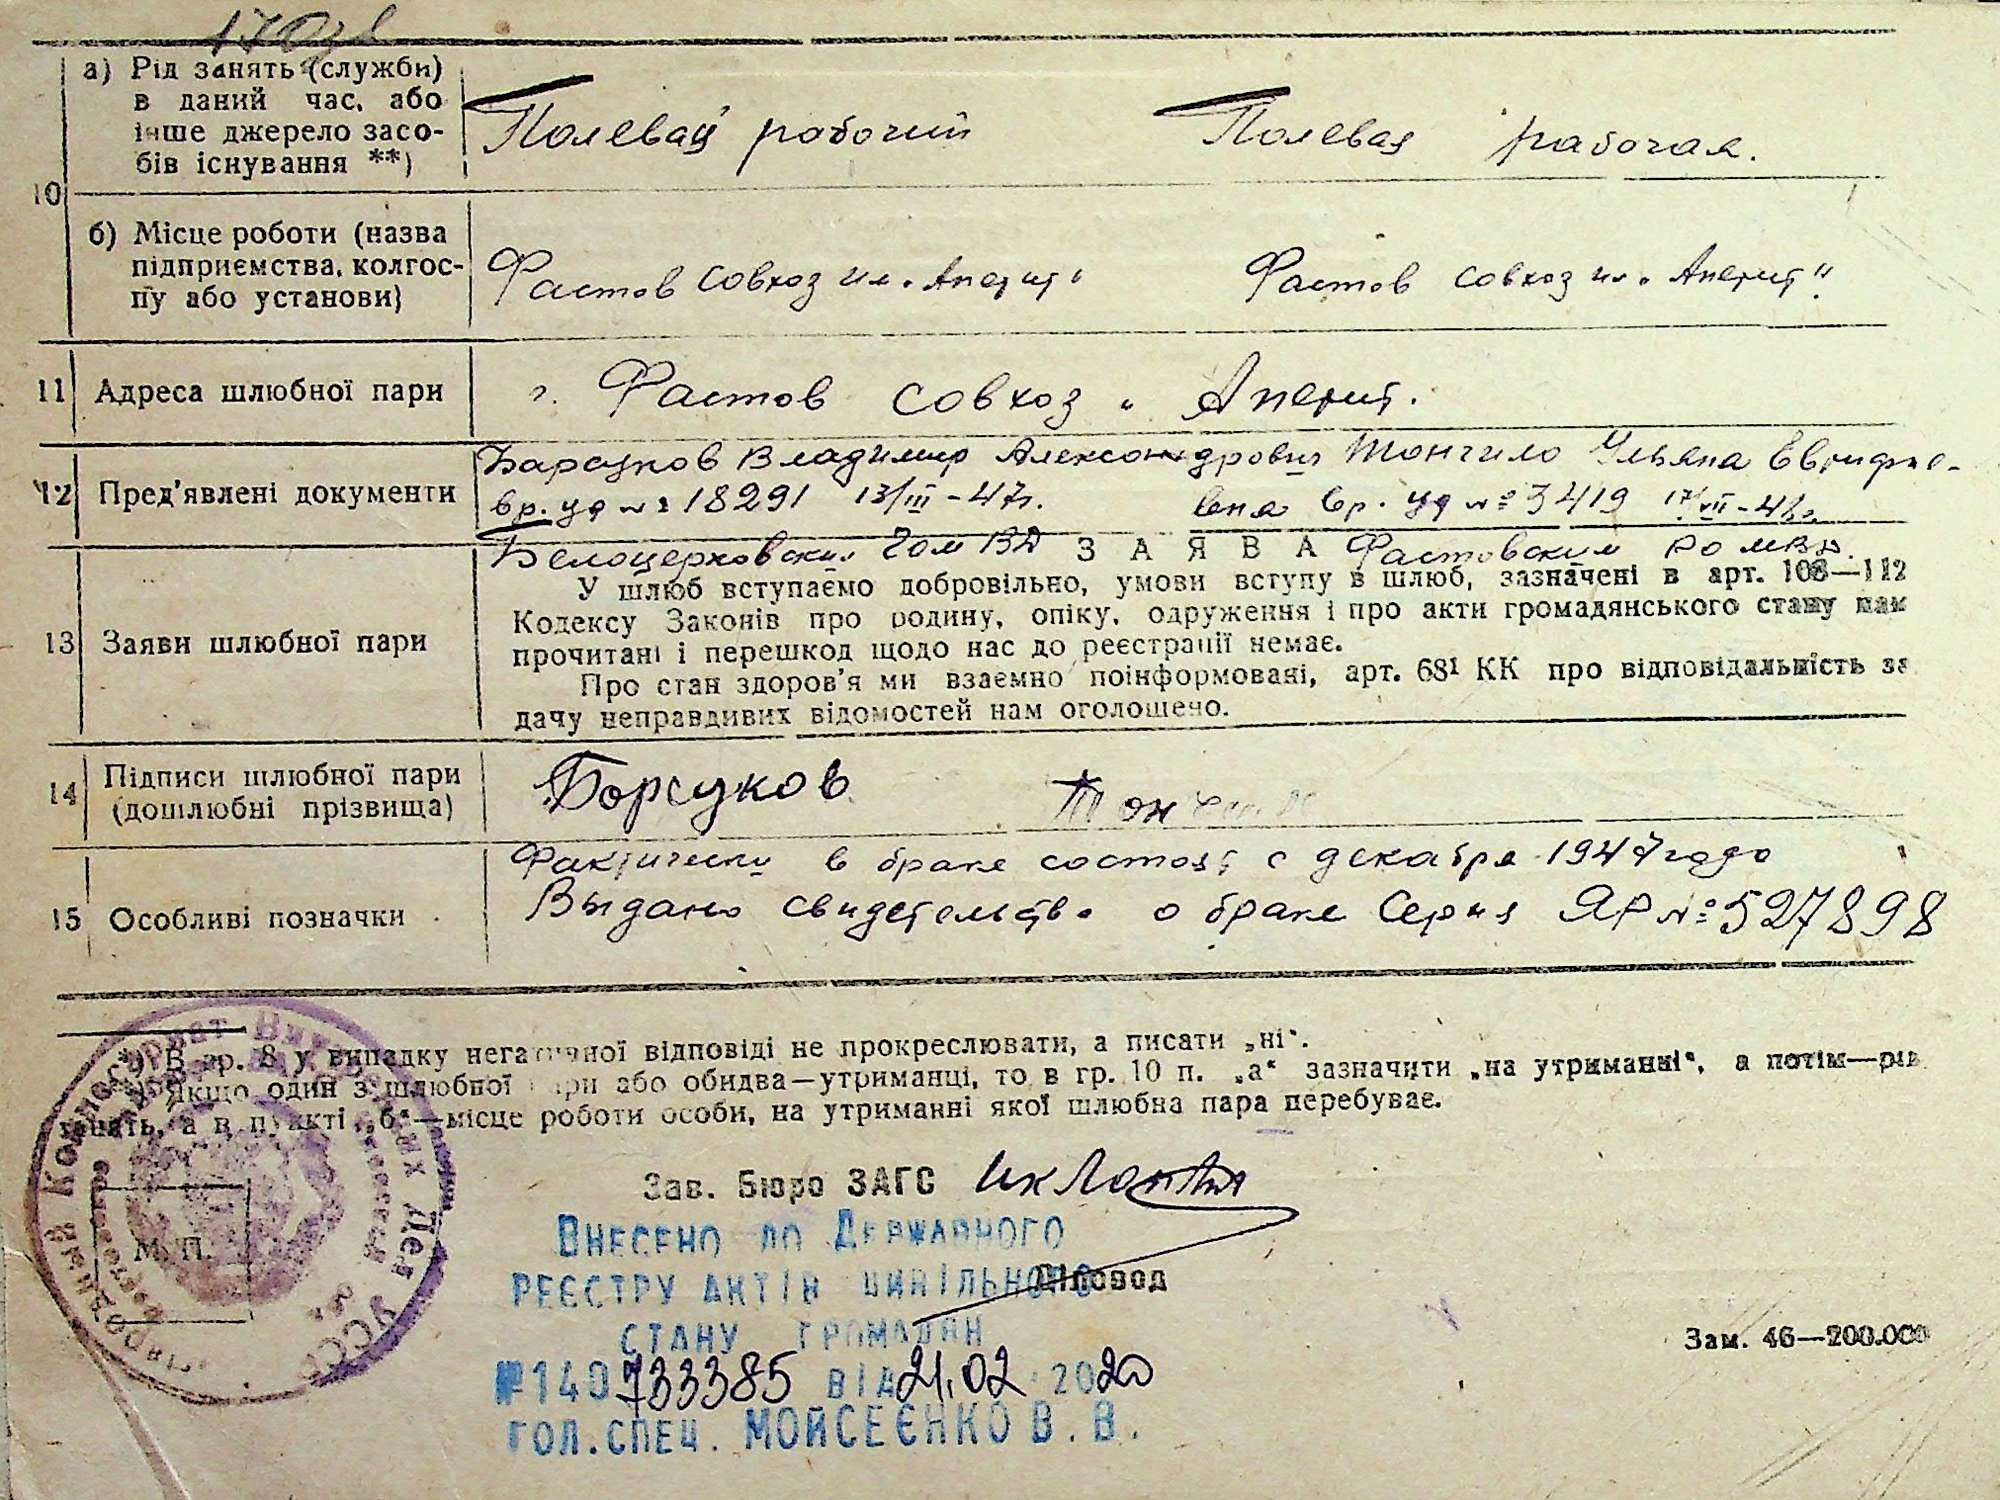 а) Рід занять (служби)
в даний час, або
інше джерело засо-
бів існування **)
Полевай рабочий
Полевая рабочая.
10
б) Місце роботи (назва
підприємства, колгос-
пу або установи)
Фастов совхоз им „Аперит"
Фастов совхоз им „Аперит".
11 Адреса шлюбної пари
г. Фастов совхоз „ Аперит.
12 Пред'явлені документи
Барсуков Владимир Александрович
вр. уд № 18291 13/III-47г.
Белоцерковским
Тончило Ульяна
вна вр. уд № 3419 17/VII-48г.
Фастовским РО МВД.
13 Заяви шлюбної пари
ЗАЯВА
У шлюб вступаємо добровільно, умови вступу в шлюб, зазначені в арт. 108—112
Кодексу Законів про родину, опіку, одруження і про акти громадянського стану нам
прочитані і перешкод щодо нас до реєстрації немає.
Про стан здоров'я ми взаємно поінформовані, арт. 68¹ КК про відповідальність за
дачу неправдивих відомостей нам оголошено.
14 Підписи шлюбної пари
(дошлюбні прізвища)
Борсуков
15 Особливі позначки
Фактически в браке состоят с декабря 1947 года
Выдано свидетельство о браке Серия ЯР № 527898
*) В гр. 8 у випадку негативної відповіді не прокреслювати, а писати „ні".
**) Якщо один з шлюбної пари або обидва—утриманці, то в гр. 10 п. „а" зазначити „на утриманні", а потім—рід
занять, а в пункті „б"—місце роботи особи, на утриманні якої шлюбна пара перебуває.
М. П.
Зав. Бюро ЗАГС
Діловод
Внесено до Державного
реєстру актів цивільного
стану громадян
№ 140733385 від 21.02 2020
гол.спец. Мойсеєнко В.В.
Зам. 46—200.000